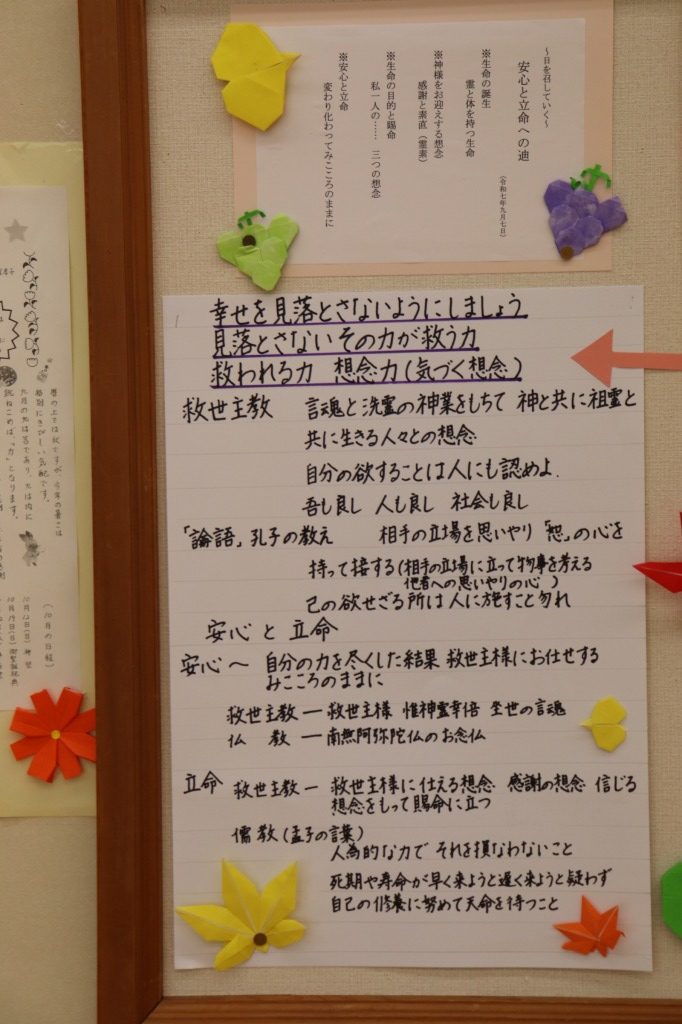 ～日を召していく～
安心と立命への廸
（令和七年九月七日）
※生命の誕生
霊と体を持つ生命
※神様をお迎えする想念
感謝と素直（霊素）
※生命の目的と賜命
私一人の…… 三つの想念
※安心と立命
変わり化わってみこころのままに
幸せを見落とさないようにしましょう
見落とさないその力が救う力
救われる力 想念力(気づく想念)
救世主教 言魂と洗霊の神業をもちて 神と共に祖霊と
共に生きる人々との想念
自分の欲することは人にも認めよ.
吾も良し 人も良し 社会も良し
「論語」孔子の教え 相手の立場を思いやり「恕」の心を
持って接する(相手の立場に立って物事を考える
他者への思いやりの心)
己の欲せざる所は人に施すこと勿れ
安心と立命
安心～ 自分の力を尽くした結果 救世主様にお任せする
みこころのままに
救世主教ー救世主様 惟神霊幸倍 坐世の言魂
仏 教ー南無阿弥陀仏のお念仏
立命 救世主教ー 救世主様に仕える想念 感謝の想念 信じる
想念をもって賜命に立つ
儒教(孟子の言葉)
人為的な力で それを損なわないこと
死期や寿命が早く来ようと遅く来ようと疑わず
自己の修養に努めて天命を待つこと
暦の上では秋ですが、今年の暑さは
格別にきびしい気配です。
(10月の日程)
10月12日(日)
10月19日(日)